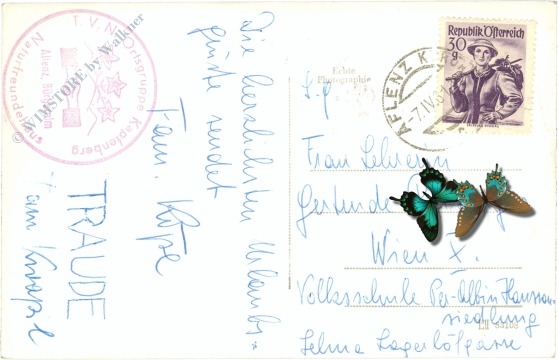 T.V.N. Ortsgruppe Kapfenberg
Naturfreundehaus
© WIMSTORE by Walkner
Die herzlichsten Urlaubs-
grüße sendet
Fam.
TRAUDE
Fam
Echte
Photographie
Republik Österreich
30
g
AFLENZ KURORT
-7.IV.61
S.g.
Frau Lehrerin
Gertrude
Wien X.
Volksschule Per-Albin Hansson
siedlung
Selma Lagerlöfgasse